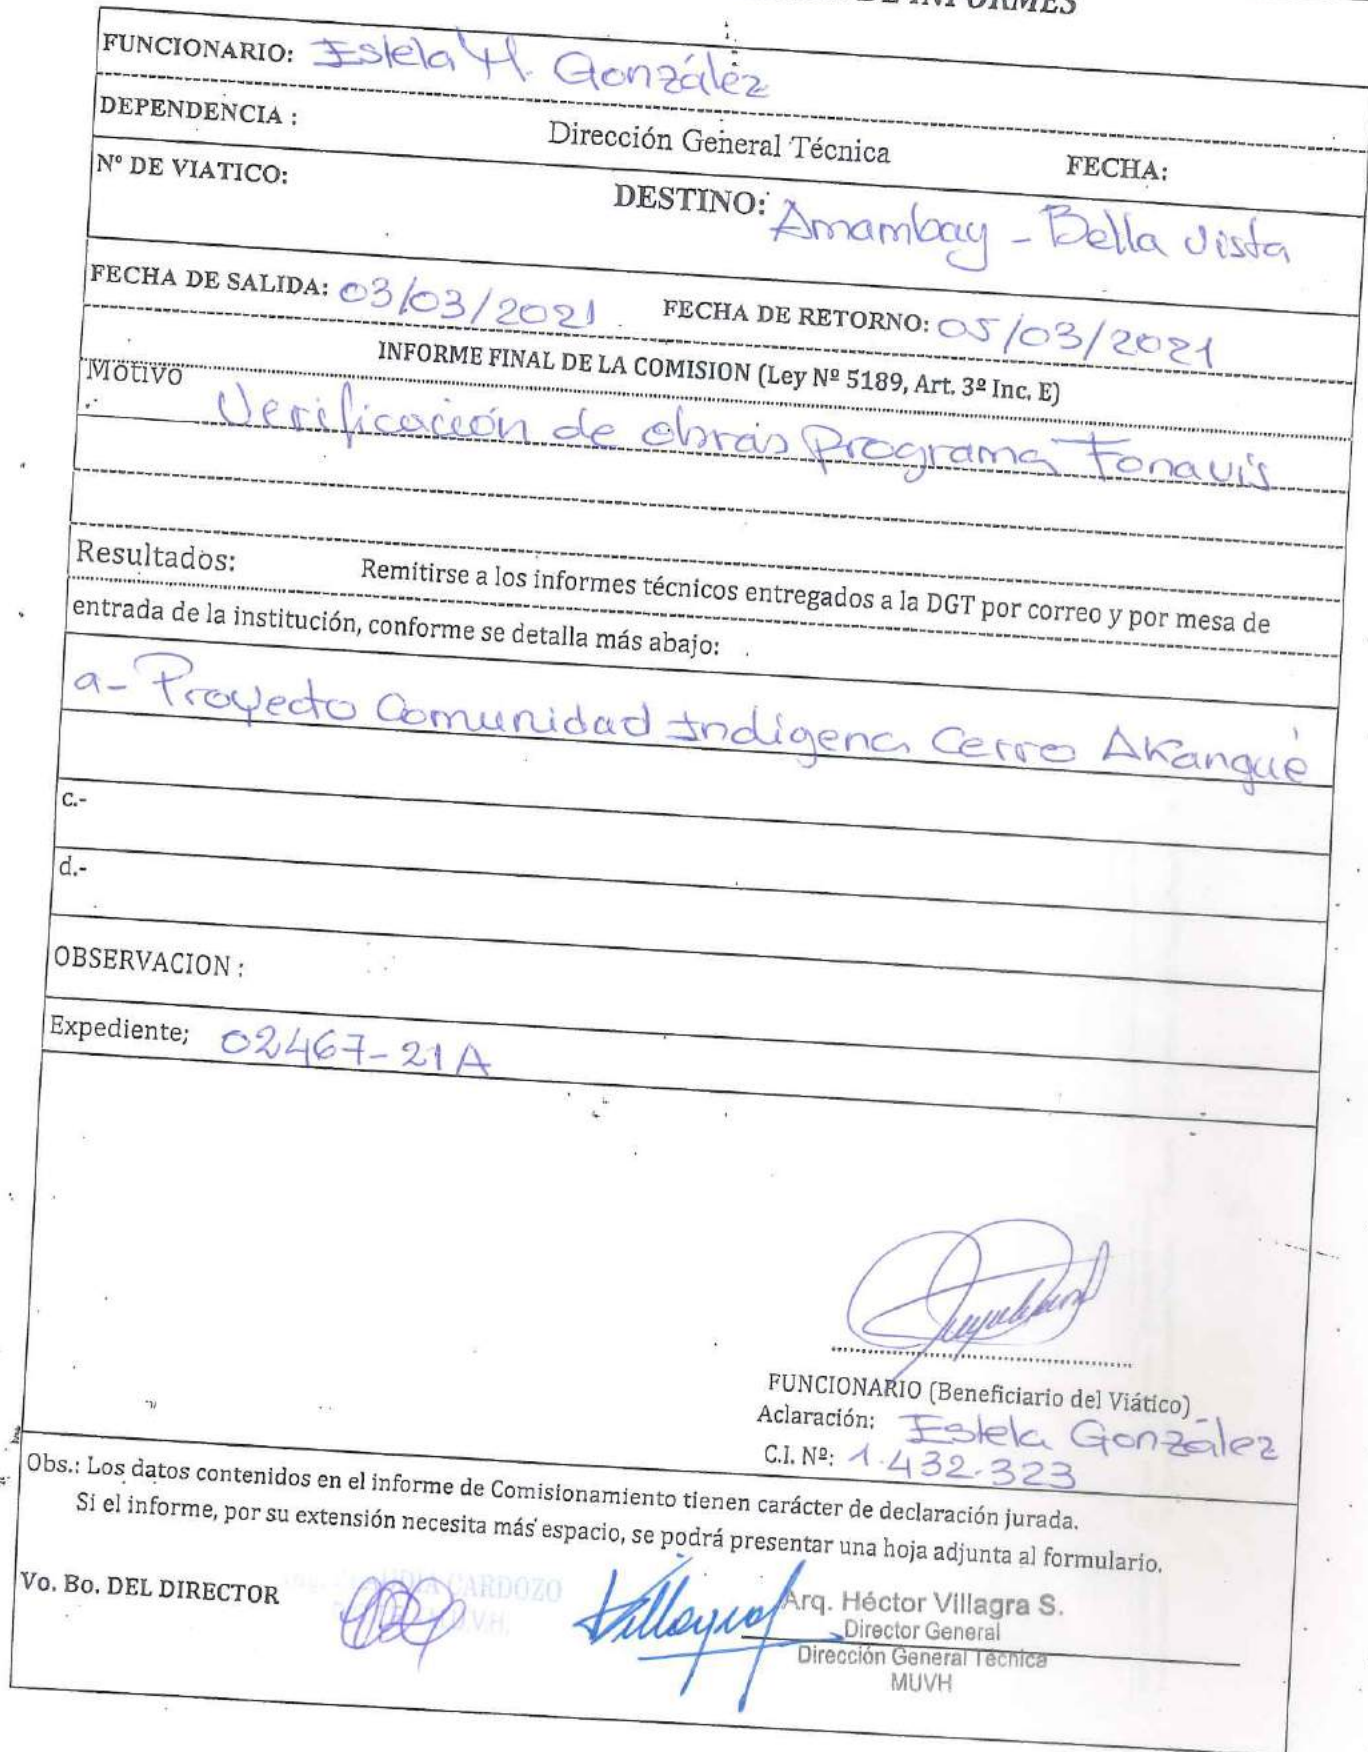 DE INFORMES
FUNCIONARIO: Estela H. González
DEPENDENCIA : Dirección General Técnica FECHA:
Nº DE VIATICO: DESTINO: Amambay - Bella Vista
FECHA DE SALIDA: 03/03/2021 FECHA DE RETORNO: 05/03/2021
INFORME FINAL DE LA COMISION (Ley Nº 5189, Art. 3º Inc. E)
Motivo
Verificación de obras Programa Fonavis
Resultados: Remitirse a los informes técnicos entregados a la DGT por correo y por mesa de
entrada de la institución, conforme se detalla más abajo:
a- Proyecto Comunidad Indígena Cerro Akangué
c.-
d.-
OBSERVACION :
Expediente; 02467-21A
FUNCIONARIO (Beneficiario del Viático)
Aclaración: Estela González
C.I. Nº: 1.432.323
Obs.: Los datos contenidos en el informe de Comisionamiento tienen carácter de declaración jurada.
Si el informe, por su extensión necesita más espacio, se podrá presentar una hoja adjunta al formulario.
Vo. Bo. DEL DIRECTOR
CARDOZO
Villagra
Arq. Héctor Villagra S.
Director General
Dirección General Técnica
MUVH